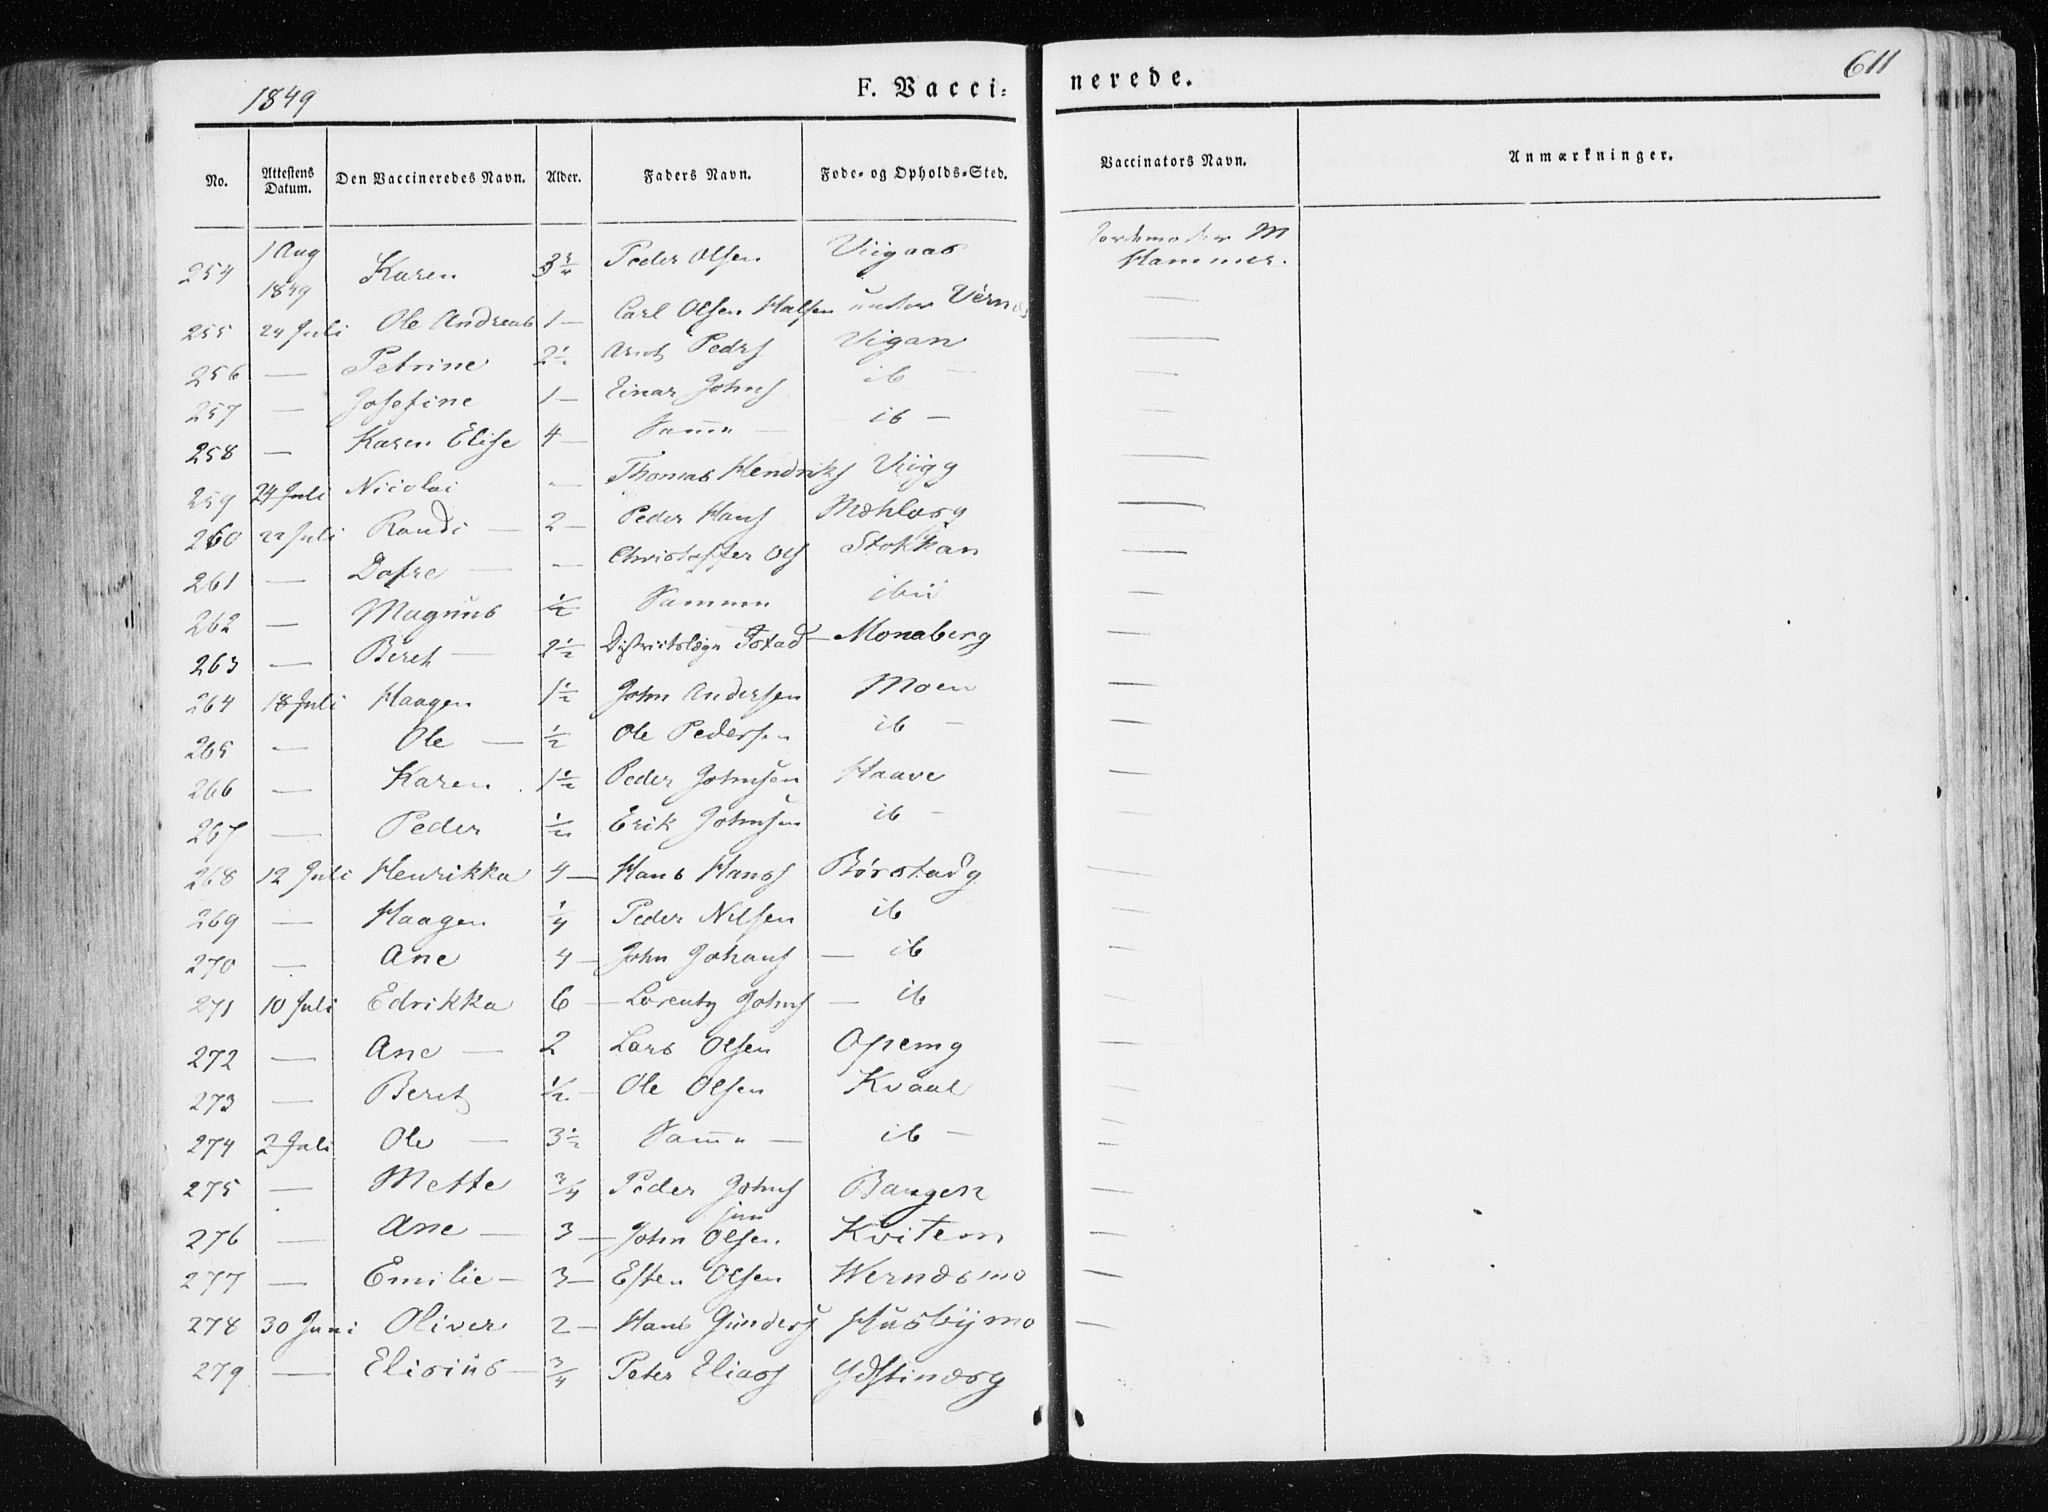 1849 F. Vacci- nerede. 611
No. Attestens Datum. Den Vaccineredes Navn. Alder. Faders Navn. Føde- og Opholds-Sted. Vaccinators Navn. Anmærkninger.
254 1 Aug 1849 Karen Peder Olsen Viigaas Jordemoder M Hammer.
255 24 Juli Ole Andreas 1 — Carl Olsen Halsen under —
256 — Petrine 2½ Arnt Peds Vigan —
257 — Josefine 1 — Einar Johns ib — —
258 — Karen Elise 4 — Samme — ib — —
259 24 Juli Nicolai — Thomas Hendriks Viigg —
260 22 Juli Randi — 2 — Peder Hans Mæhlarg —
261 — — — Christoffer Ols Stokkan —
262 — Magnus ½ Sammen —
263 — Beret — 2½ Distriktslæge Monaberg —
264 18 Juli Haagen 1½ John Andersen Moen —
265 — Ole — ½ Ole Pedersen ib — —
266 — Karen 1½ Peder Johnsen Haave —
267 — Peder ½ Erik Johnsen ib — —
268 12 Juli Henrikka 4 — Hans Hans Børstadg —
269 — Haagen ¼ Peder Nilsen ib —
270 — Ane 4 — John Johans — ib —
271 10 Juli Edrikka 6 — Lorentz Johns — ib —
272 — Ane — 2 Lars Olsen —
273 — Beret ½ — Ole Olsen Kvaal —
274 2 Juli Ole — 3½ Samme — ib — —
275 — Mette ¾ Peder Johns Baugen —
276 — Ane — 3 — John Olsen jun Kvitem —
277 — Emilie — 3 — Esten Olsen Wernæsmo —
278 30 Juni Oliver 2 — Hans Gunders Husbymo —
279 — Elisius — ¾ Peter Elias